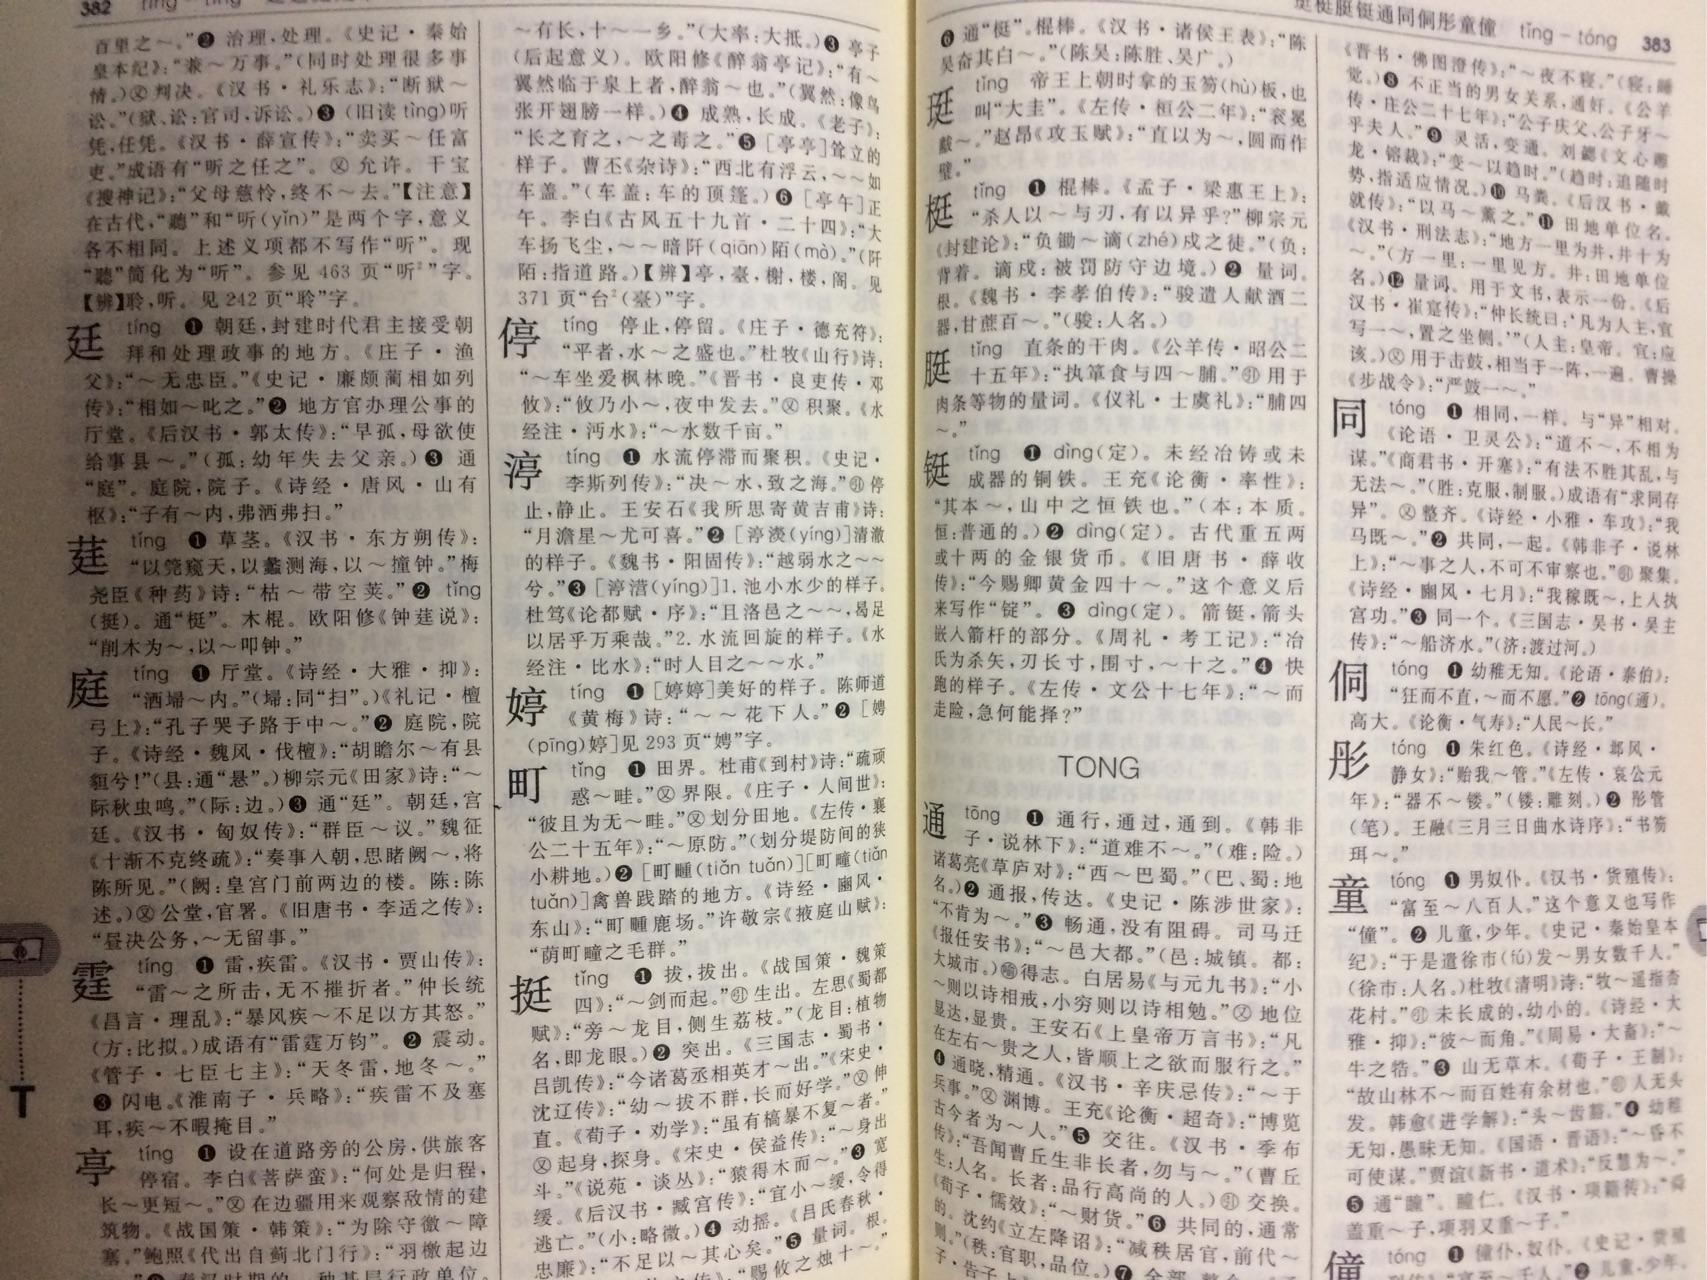 382
百里之～。”❷ 治理,处理。《史记·秦始
皇本纪》:“兼～万事。”(同时处理很多事
情。)㊀判决。《汉书·礼乐志》:“断狱～
讼。”(狱、讼:官司,诉讼。)❸ (旧读 tìng)听
凭,任凭。《汉书·薛宣传》:“卖买～任富
吏。”成语有“听之任之”。㊀ 允许。干宝
《搜神记》:“父母慈怜,终不～去。”【注意】
在古代,“聽”和“听(yǐn)”是两个字,意义
各不相同。上述义项都不写作“听”。现
“聽”简化为“听”。参见 463 页“听²”字。
【辨】聆,听。见 242 页“聆”字。
廷 tíng ❶ 朝廷,封建时代君主接受朝
拜和处理政事的地方。《庄子·渔
父》:“～无忠臣。”《史记·廉颇蔺相如列
传》:“相如～叱之。”❷ 地方官办理公事的
厅堂。《后汉书·郭太传》:“早孤,母欲使
给事县～。”(孤:幼年失去父亲。)❸ 通
“庭”。庭院,院子。《诗经·唐风·山有
枢》:“子有～内,弗洒弗扫。”
莛 tíng ❶ 草茎。《汉书·东方朔传》:
“以筦窥天,以蠡测海,以～撞钟。”梅
尧臣《种药》诗:“枯～带空荚。”❷ tǐng
(挺)。通“梃”。木棍。欧阳修《钟莛说》:
“削木为～,以～叩钟。”
庭 tíng ❶ 厅堂。《诗经·大雅·抑》:
“洒埽～内。”(埽:同“扫”。)《礼记·檀
弓上》:“孔子哭子路于中～。”❷ 庭院,院
子。《诗经·魏风·伐檀》:“胡瞻尔～有县
貆兮!”(县:通“悬”。)柳宗元《田家》诗:“～
际秋虫鸣。”(际:边。)❸ 通“廷”。朝廷,宫
廷。《汉书·匈奴传》:“群臣～议。”魏征
《十渐不克终疏》:“奏事入朝,思睹阙～,将
陈所见。”(阙:皇宫门前两边的楼。陈:陈
述。)㊀公堂,官署。《旧唐书·李适之传》:
“昼决公务,～无留事。”
霆 tíng ❶ 雷,疾雷。《汉书·贾山传》:
“雷～之所击,无不摧折者。”仲长统
《昌言·理乱》:“暴风疾～不足以方其怒。”
(方:比拟。)成语有“雷霆万钧”。❷ 震动。
《管子·七臣七主》:“天冬雷,地冬～。”
❸ 闪电。《淮南子·兵略》:“疾雷不及塞
耳,疾～不暇掩目。”
亭 tíng ❶ 设在道路旁的公房,供旅客
停宿。李白《菩萨蛮》:“何处是归程,
长～更短～。”㊀在边疆用来观察敌情的建
筑物。《战国策·韩策》:“为除守徼～障
塞。”鲍照《代出自蓟北门行》:“羽檄起边
T
～有长,十～一乡。”(大率:大抵。)❸ 亭子
(后起意义)。欧阳修《醉翁亭记》:“有～
翼然临于泉上者,醉翁～也。”(翼然:像鸟
张开翅膀一样。)❹ 成熟,长成。《老子》:
“长之育之,～之毒之。”❺ [亭亭]耸立的
样子。曹丕《杂诗》:“西北有浮云,～～如
车盖。”(车盖:车的顶篷。)❻ [亭午]正
午。李白《古风五十九首·二十四》:“大
车扬飞尘,～～暗阡(qiān)陌(mò)。”(阡
陌:指道路。)【辨】亭,臺,榭,楼,阁。见
371 页“台²(臺)”字。
停 tíng 停止,停留。《庄子·德充符》:
“平者,水～之盛也。”杜牧《山行》诗:
“～车坐爱枫林晚。”《晋书·良吏传·邓
攸》:“攸乃小～,夜中发去。”㊀积聚。《水
经注·沔水》:“～水数千亩。”
渟 tíng ❶ 水流停滞而聚积。《史记·
李斯列传》:“决～水,致之海。”㊁停
止,静止。王安石《我所思寄黄吉甫》诗:
“月澹星～尤可喜。”❷ [渟濙(yíng)]清澈
的样子。《魏书·阳固传》:“越弱水之～～
兮。”❸ [渟滢(yíng)]1. 池小水少的样子。
杜笃《论都赋·序》:“且洛邑之～～,曷足
以居乎万乘哉。”2. 水流回旋的样子。《水
经注·比水》:“时人目之～～水。”
婷 tíng ❶ [婷婷]美好的样子。陈师道
《黄梅》诗:“～～花下人。”❷ [娉
(pīng)婷]见 293 页“娉”字。
町 tǐng ❶ 田界。杜甫《到村》诗:“疏顽
惑～畦。”㊀界限。《庄子·人间世》:
“彼且为无～畦。”㊀划分田地。《左传·襄
公二十五年》:“～原防。”(划分堤防间的狭
小耕地。)❷ [町畽(tiǎn tuǎn)][町疃(tiǎn
tuǎn)]禽兽践踏的地方。《诗经·豳风·
东山》:“町畽鹿场。”许敬宗《掖庭山赋》:
“荫町疃之毛群。”
挺 tǐng ❶ 拔,拔出。《战国策·魏策
四》:“～剑而起。”㊁生出。左思《蜀都
赋》:“旁～龙目,侧生荔枝。”(龙目:植物
名,即龙眼。)❷ 突出。《三国志·蜀书·
吕凯传》:“今诸葛丞相英才～出。”《宋史·
沈辽传》:“幼～拔不群,长而好学。”㊀伸
直。《荀子·劝学》:“虽有槁暴不复～者。”
㊀起身,探身。《宋史·侯益传》:“～身出
斗。”《说苑·谈丛》:“猿得木而～。”❸ 宽
缓。《后汉书·臧宫传》:“宜小～缓,令得
逃亡。”(小:略微。)❹ 动摇。《吕氏春秋·
忠廉》:“不足以～其心矣。”❺ 量词。根。
珽梃脡铤通同侗彤童僮 tǐng – tóng 383
❻ 通“梃”。棍棒。《汉书·诸侯王表》:“陈
吴奋其白～。”(陈吴:陈胜、吴广。)
珽 tǐng 帝王上朝时拿的玉笏(hù)板,也
叫“大圭”。《左传·桓公二年》:“衮冕
黻～。”赵昂《攻玉赋》:“直以为～,圆而作
璧。”
梃 tǐng ❶ 棍棒。《孟子·梁惠王上》:
“杀人以～与刃,有以异乎?”柳宗元
《封建论》:“负锄～谪(zhé)戍之徒。”(负:
背着。谪戍:被罚防守边境。)❷ 量词。
根。《魏书·李孝伯传》:“骏遣人献酒二
器,甘蔗百～。”(骏:人名。)
脡 tǐng 直条的干肉。《公羊传·昭公二
十五年》:“执箪食与四～脯。”㊁用于
肉条等物的量词。《仪礼·士虞礼》:“脯四
～。”
铤 tǐng ❶ dìng(定)。未经冶铸或未
成器的铜铁。王充《论衡·率性》:
“其本～,山中之恒铁也。”(本:本质。
恒:普通的。)❷ dìng(定)。古代重五两
或十两的金银货币。《旧唐书·薛收
传》:“今赐卿黄金四十～。”这个意义后
来写作“锭”。❸ dìng(定)。箭铤,箭头
嵌入箭杆的部分。《周礼·考工记》:“冶
氏为杀矢,刃长寸,围寸,～十之。”❹ 快
跑的样子。《左传·文公十七年》:“～而
走险,急何能择?”
TONG
通 tōng ❶ 通行,通过,通到。《韩非
子·说林下》:“道难不～。”(难:险。)
诸葛亮《草庐对》:“西～巴蜀。”(巴、蜀:地
名。)❷ 通报,传达。《史记·陈涉世家》:
“不肯为～。”❸ 畅通,没有阻碍。司马迁
《报任安书》:“～邑大都。”(邑:城镇。都:
大城市。)㊂得志。白居易《与元九书》:“小
～则以诗相戒,小穷则以诗相勉。”㊀地位
显达,显贵。王安石《上皇帝万言书》:“凡
在左右～贵之人,皆顺上之欲而服行之。”
❹ 通晓,精通。《汉书·辛庆忌传》:“～于
兵事。”㊀渊博。王充《论衡·超奇》:“博览
古今者为～人。”❺ 交往。《汉书·季布
传》:“吾闻曹丘生非长者,勿与～。”(曹丘
生:人名。长者:品行高尚的人。)㊁交换。
《荀子·儒效》:“～财货。”❻ 共同的,通常
的。沈约《立左降诏》:“减秩居官,前代～
则。”(秩:官职,品位。)
《晋书·佛图澄传》:“～夜不寝。”(寝:睡
觉。)❽ 不正当的男女关系,通奸。《公羊
传·庄公二十七年》:“公子庆父、公子牙～
乎夫人。”❾ 灵活,变通。刘勰《文心雕
龙·镕裁》:“变～以趋时。”(趋时:追随时
势,指适应情况。)❿ 马粪。《后汉书·戴
就传》:“以马～薰之。”⓫ 田地单位名。
《汉书·刑法志》:“地方一里为井,井十为
～。”(方一里:一里见方。井:田地单位
名。)⓬ 量词。用于文书,表示一份。《后
汉书·崔寔传》:“仲长统曰:‘凡为人主,宜
写一～,置之坐侧。’”(人主:皇帝。宜:应
该。)㊀用于击鼓,相当于一阵,一遍。曹操
《步战令》:“严鼓一～。”
同 tóng ❶ 相同,一样。与“异”相对。
《论语·卫灵公》:“道不～,不相为
谋。”《商君书·开塞》:“有法不胜其乱,与
无法～。”(胜:克服,制服。)成语有“求同存
异”。㊀整齐。《诗经·小雅·车攻》:“我
马既～。”❷ 共同,一起。《韩非子·说林
上》:“～事之人,不可不审察也。”㊁聚集。
《诗经·豳风·七月》:“我稼既～,上入执
宫功。”❸ 同一个。《三国志·吴书·吴主
传》:“～船济水。”(济:渡过河。)
侗 tóng ❶ 幼稚无知。《论语·泰伯》:
“狂而不直,～而不愿。”❷ tōng(通)。
高大。《论衡·气寿》:“人民～长。”
彤 tóng ❶ 朱红色。《诗经·邶风·
静女》:“贻我～管。”《左传·哀公元
年》:“器不～镂。”(镂:雕刻。)❷ 彤管
(笔)。王融《三月三日曲水诗序》:“书笏
珥～。”
童 tóng ❶ 男奴仆。《汉书·货殖传》:
“富至～八百人。”这个意义也写作
“僮”。❷ 儿童,少年。《史记·秦始皇本
纪》:“于是遣徐市(fú)发～男女数千人。”
(徐市:人名。)杜牧《清明》诗:“牧～遥指杏
花村。”㊁未长成的,幼小的。《诗经·大
雅·抑》:“彼～而角。”《周易·大畜》:“～
牛之牿。”❸ 山无草木。《荀子·王制》:
“故山林不～而百姓有余材也。”㊂人无头
发。韩愈《进学解》:“头～齿豁。”❹ 幼稚
无知,愚昧无知。《国语·晋语》:“～昏不
可使谋。”贾谊《新书·道术》:“反慧为～。”
❺ 通“瞳”。瞳仁。《汉书·项籍传》:“舜
盖重～子,项羽又重～子。”
僮 tóng ❶ 僮仆,奴仆。《史记·货殖